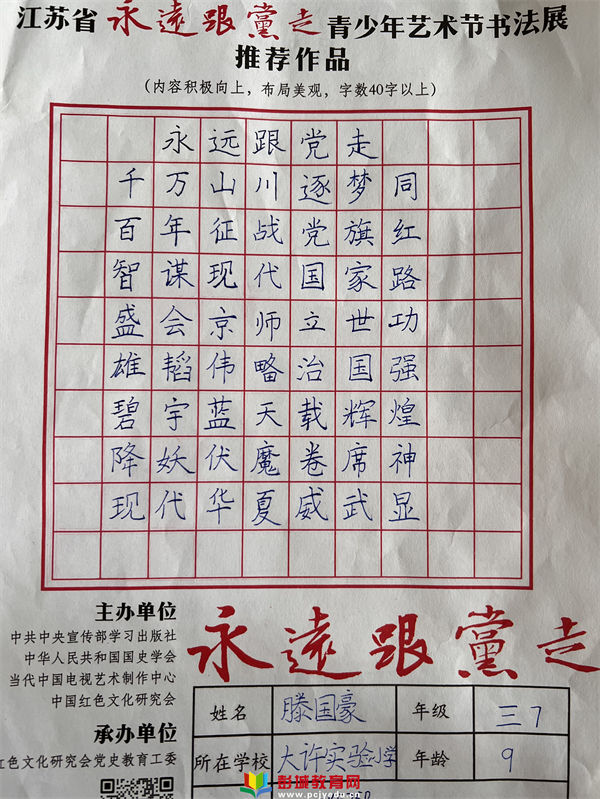 江苏省永遠跟黨走青少年艺术节书法展
推荐作品
(内容积极向上，布局美观，字数40字以上)
永远跟党走
千万山川逐梦同
百年征战党旗红
智谋现代国家路
盛会京师立世功
雄韬伟略治国强
碧宇蓝天载辉煌
降妖伏魔卷席神
现代华夏威武显
主办单位
中共中央宣传部学习出版社
中华人民共和国国史学会
当代中国电视艺术制作中心
中国红色文化研究会
承办单位
红色文化研究会党史教育工委
永遠跟黨走
姓名 滕国豪 年级 三7
所在学校 大许实验小学 年龄 9
彭城教育网
www.pcjyedu.cn